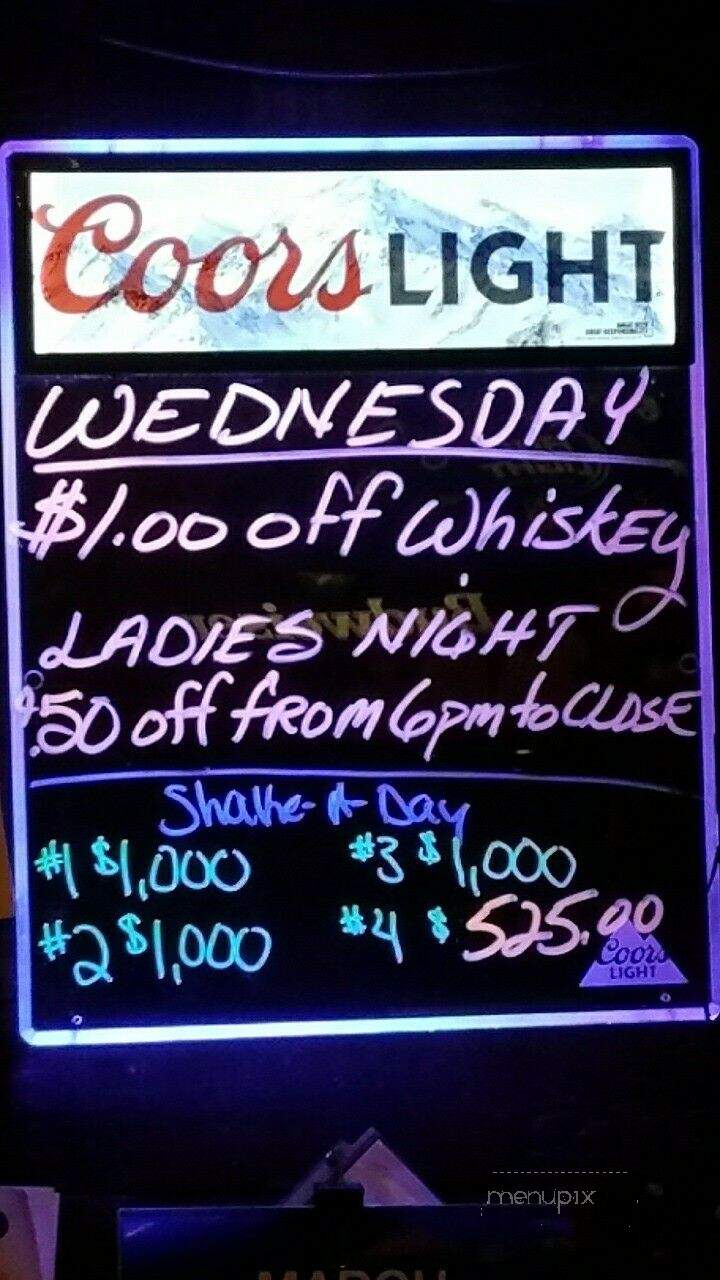 Coors LIGHT
WEDNESDAY
$1.00 off WhiskEy
LADIES NIGHT
$.50 off fROM 6pm to CLOSE
Shake-A-Day
#1 $1,000
#3 $1,000
#2 $1,000
#4 $525.00
Coors
LIGHT
Budweiser
menupix
MARCH